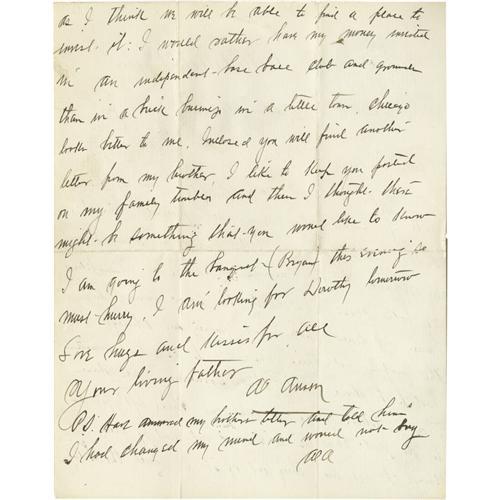 as I think we will be able to find a place to
invest it: I would rather have my money invested
in an independent base ball club and grounds
than in a brick business in a little town, Chicago
looks better to me. Inclosed you will find another
letter from my brother, I like to keep you posted
on my family timbers and then I thought there
might be something that you would like to know
I am going to the banquet (Bryan) this evening so
must hurry. I am looking for Dorothy tomorrow
Love hugs and kisses for all
Your loving father
AC Anson
P.S. Have answered my brothers letter and told him
I had changed my mind and would not buy